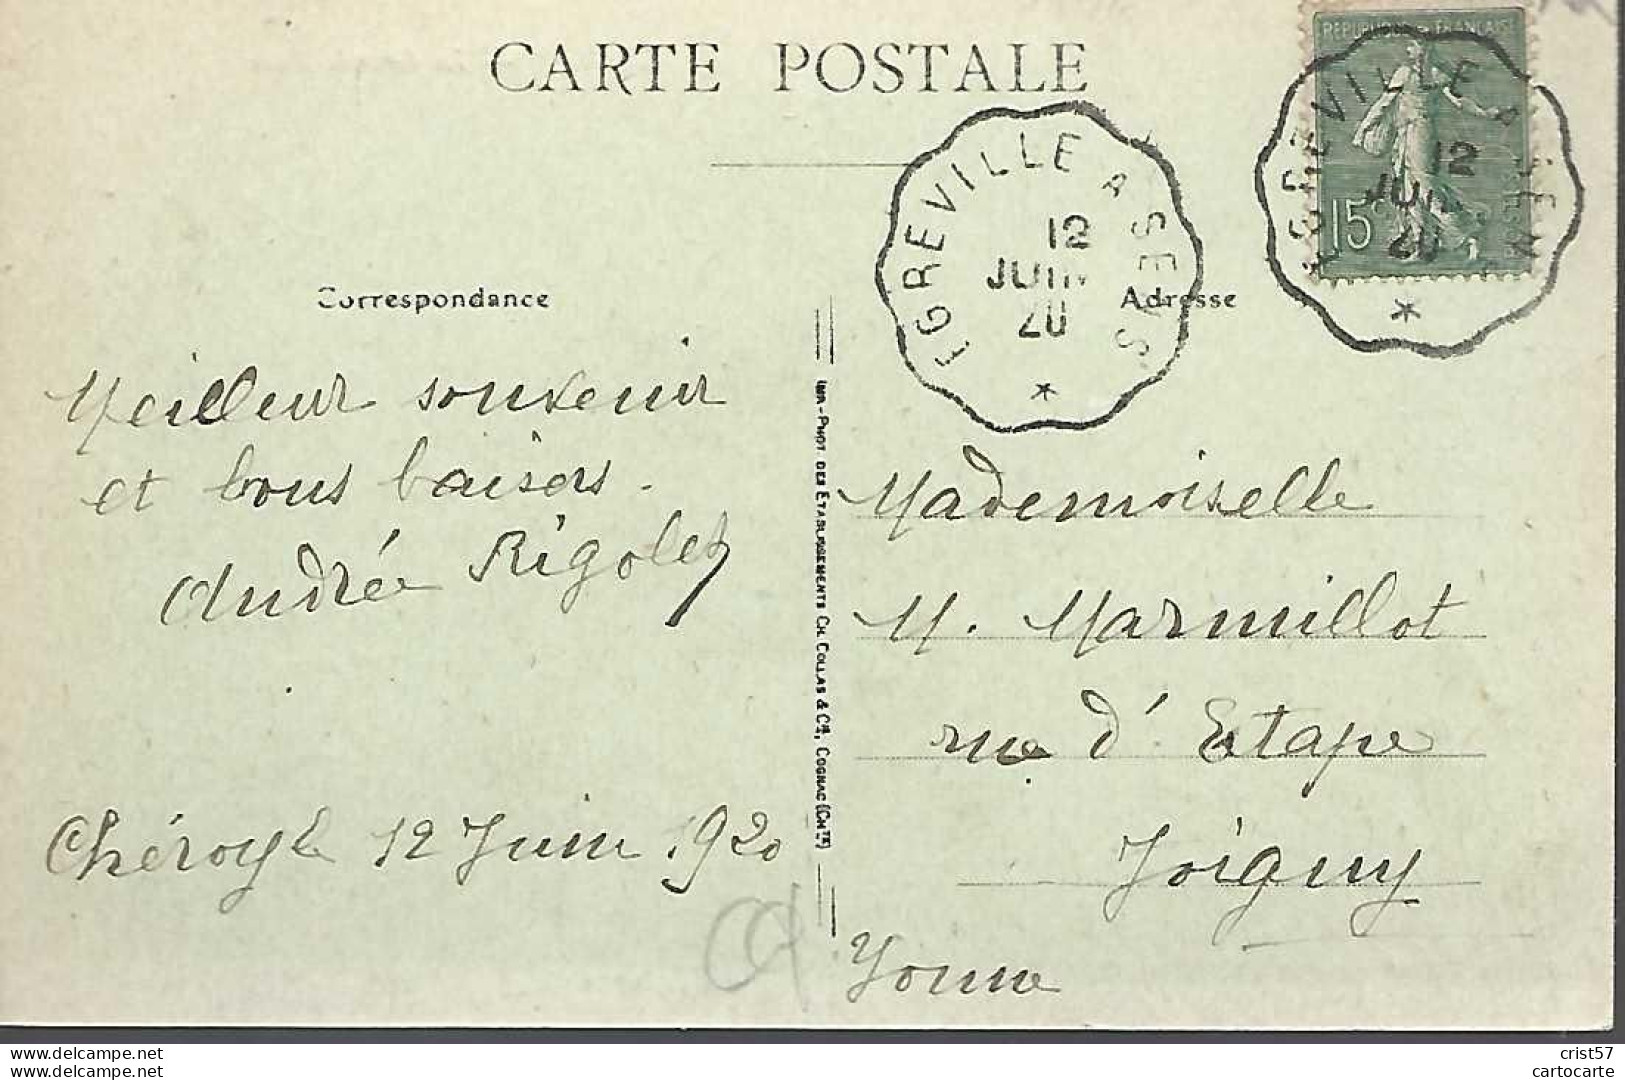 CARTE POSTALE
RÉPUBLIQUE FRANÇAISE
15c
POSTES
EGREVILLE A SENS
12
JUIN
20
EGREVILLE A SENS
12
JUIN
20
Correspondance
Adresse
Meilleur souvenir
et bons baisers.
Andrée Rigolet
Chéroy le 12 Juin 1920
IMP.-PHOT. DES ETABLISSEMENTS CH. COLLAS & Cie, COGNAC (CHte)
Mademoiselle
M. Marmillot
rue d'Etape
Joigny
Yonne
www.delcampe.net
www.delcampe.net
crist57
cartocarte